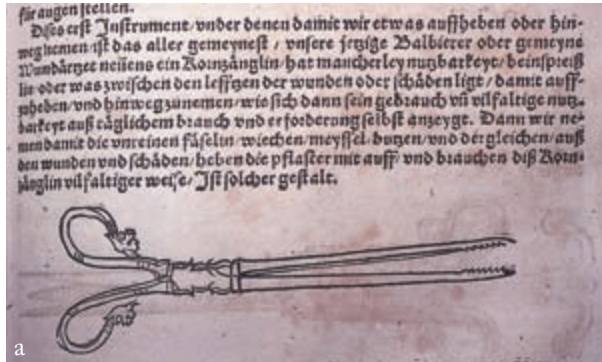 für augen stellen.
Dises erst Instrument / vnder denen damit wir etwas auffheben oder hin-
weg nemen ist das aller gemeynest / vnsere jetzige Balbierer oder gemeyne
Wundärtzet neñens ein Kornzänglin / hat mancherley nutzbarkeyt / beinspreiß
lin oder was zwischen den lefftzen der wunden oder schäden ligt / damit auff-
zuheben / vnd hinweg zunemen / wie sich dann sein gebrauch vñ vilfaltige nutz-
barkeyt auß täglichem brauch vnd erforderung selbst anzeygt. Dann wir ne-
men damit die vnreinen fäselin / wiechen / meyssel / butzen / vnd dergleichen / auß
den wunden vnd schäden / heben die pflaster mit auff / vnd brauchen diß Korn-
zänglin vilfaltiger weise / Ist solcher gestalt.
a